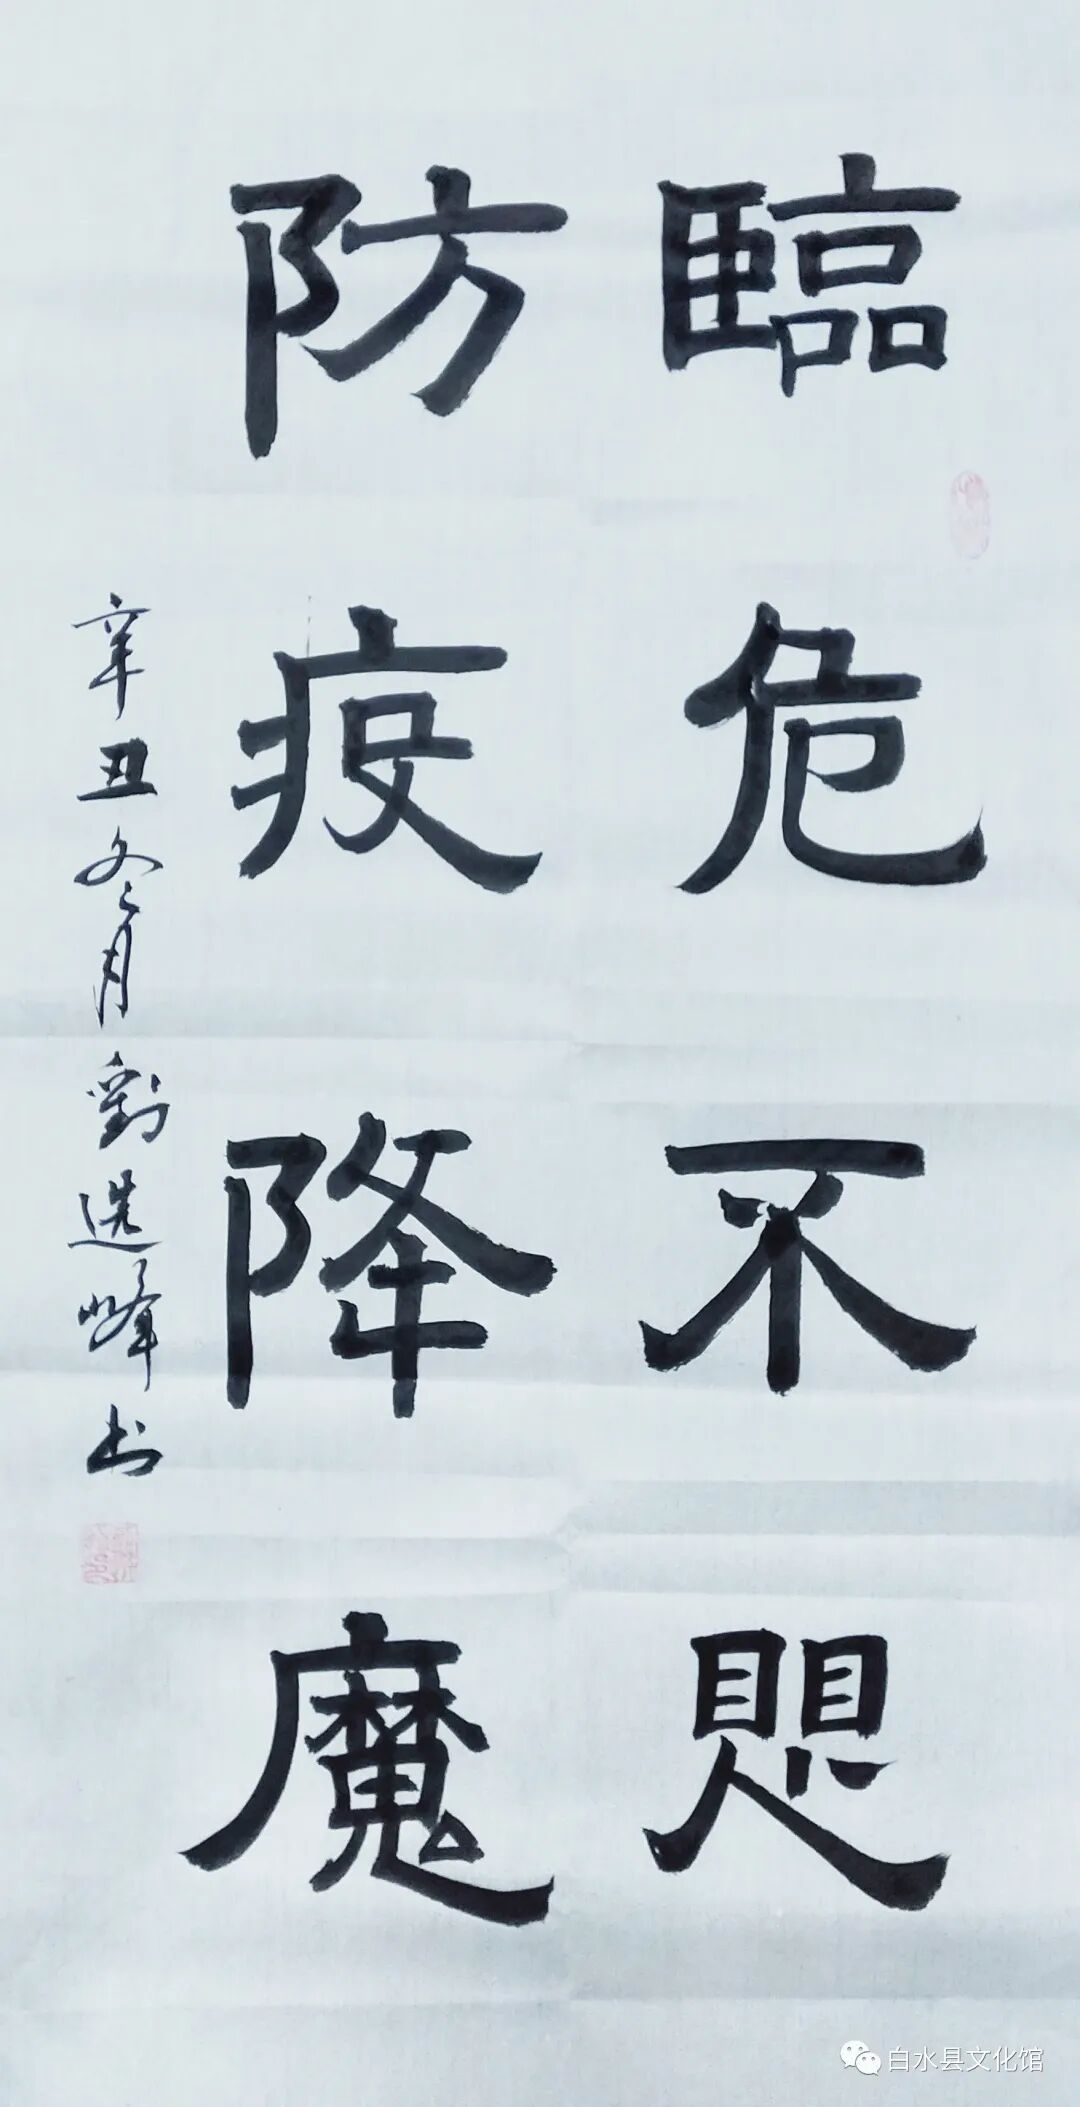 臨危不思
防疫降魔
辛丑冬月劉選峰书
白水县文化馆